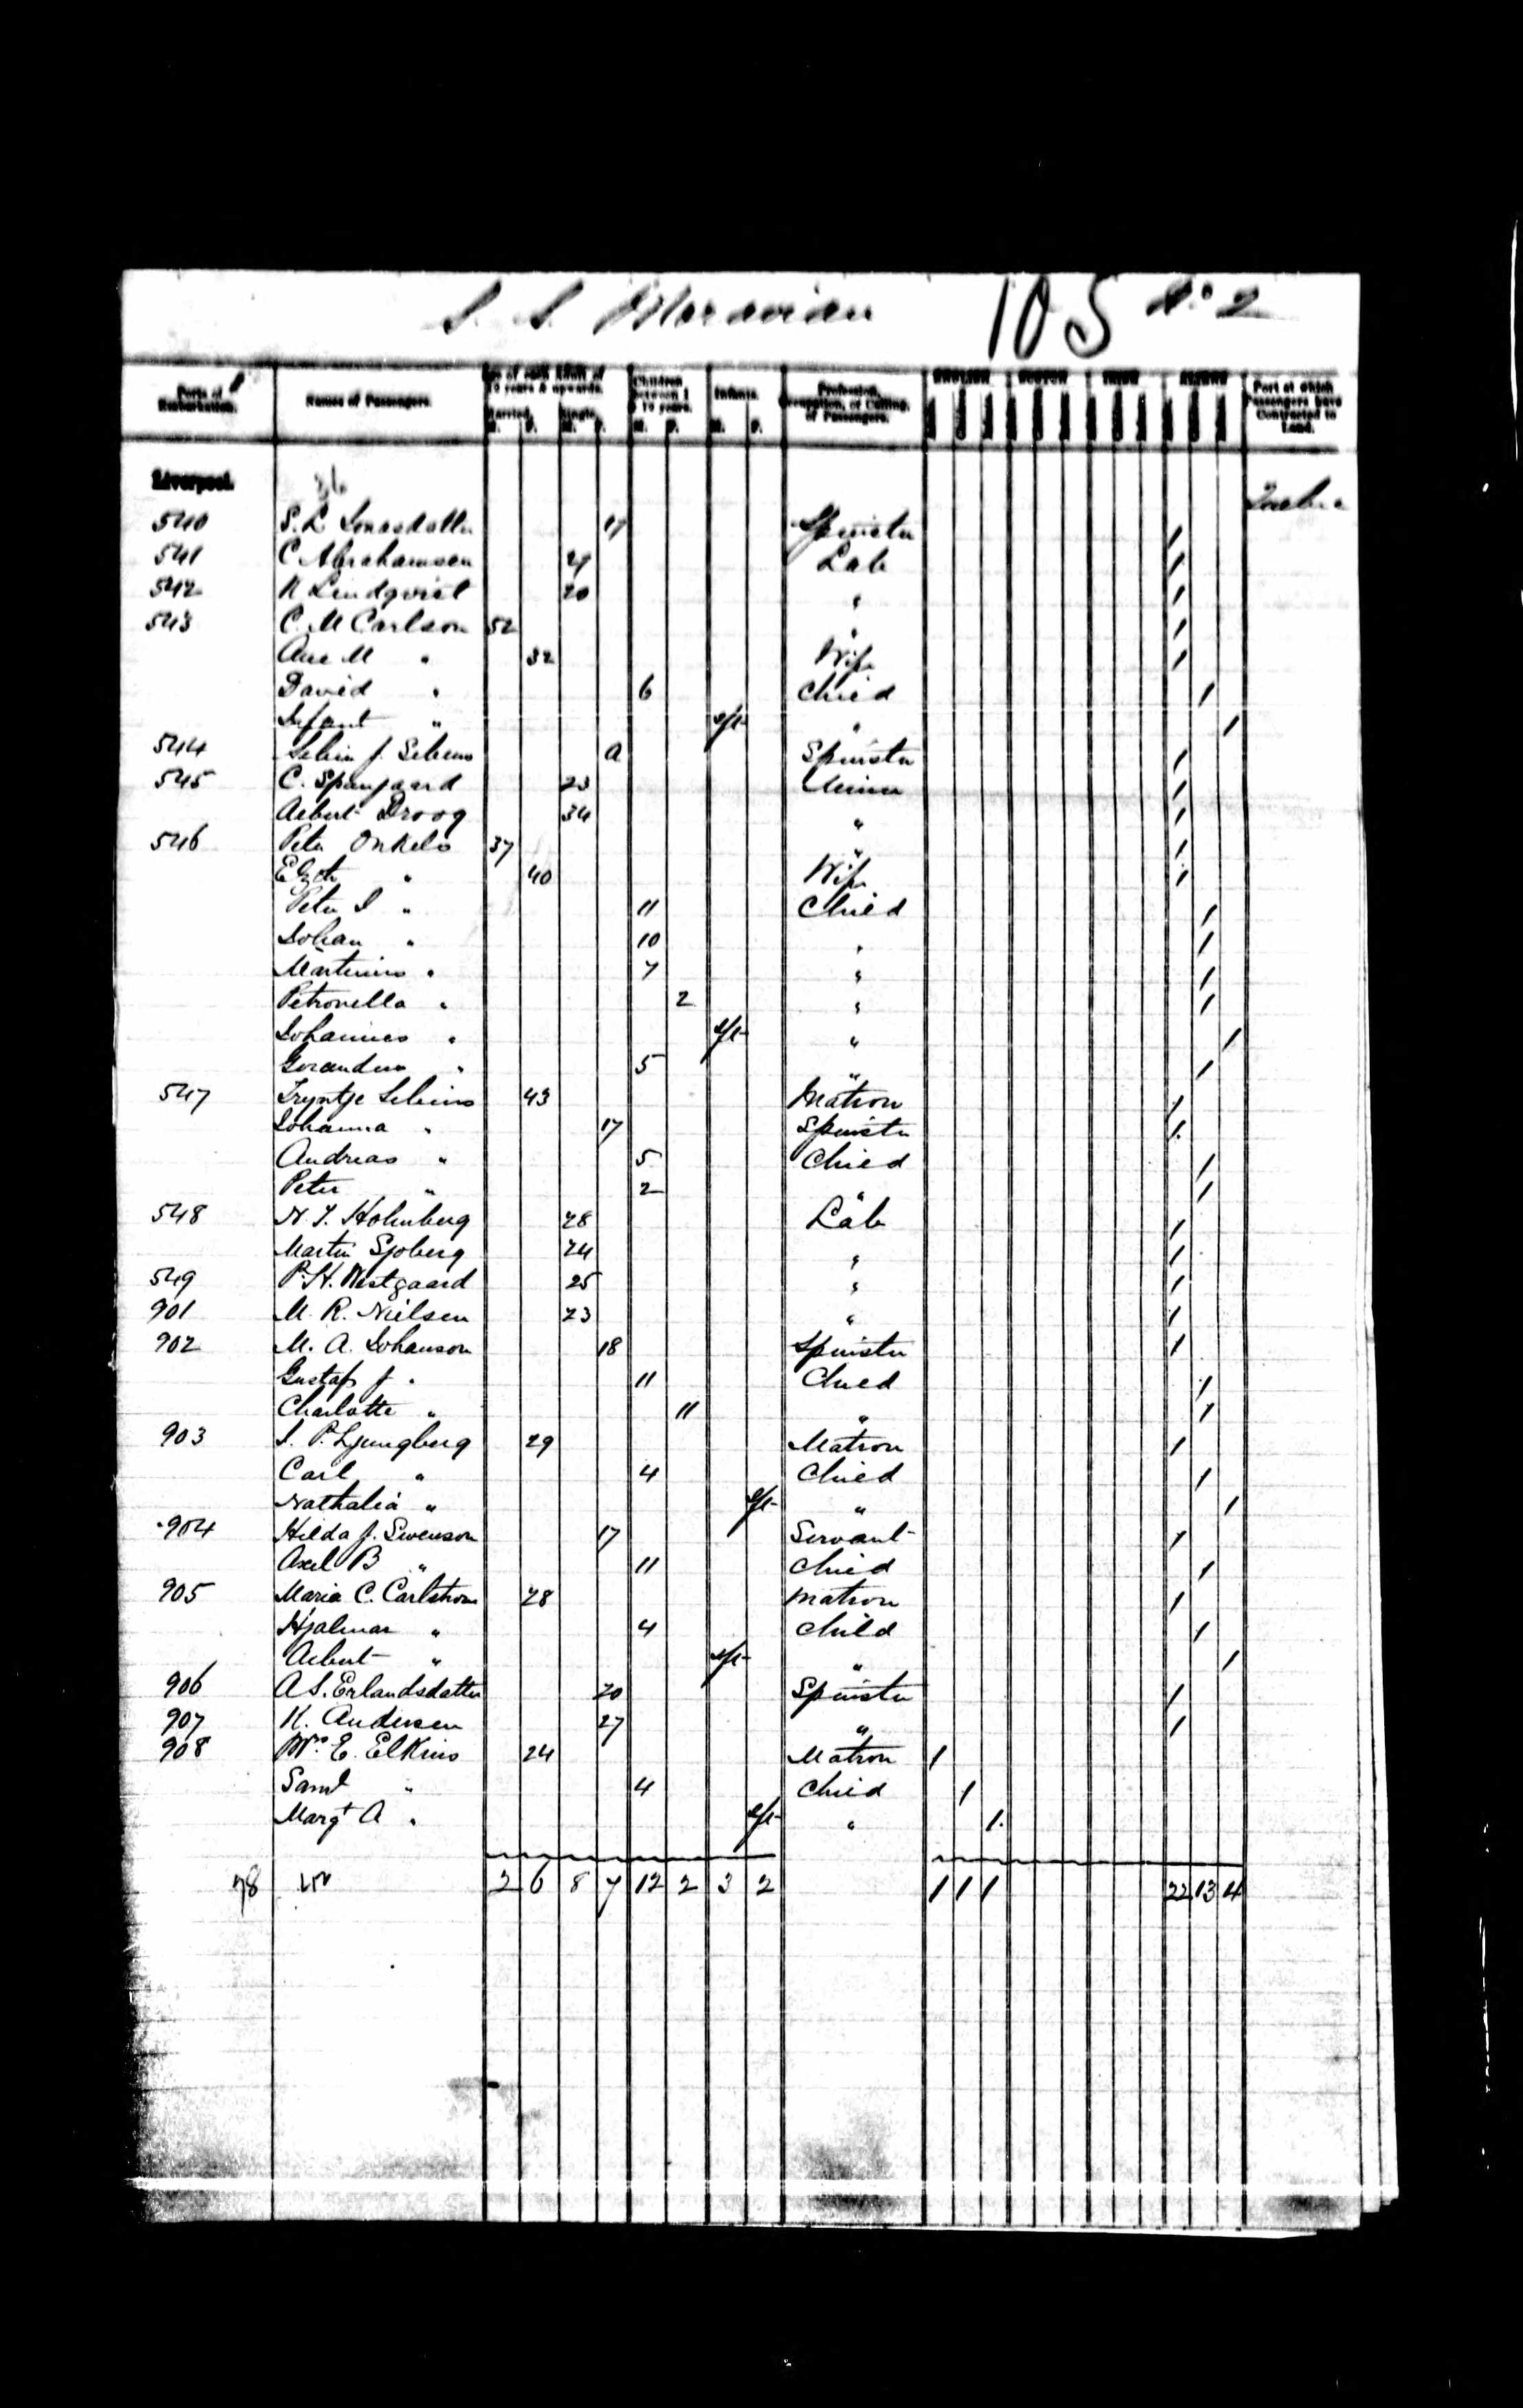 S. S. Moravian 105 No 2
Ports of Embarkation. Names of Passengers. Age of each Adult of 10 years & upwards. Children between 1 & 10 years. Infants. Profession, Occupation, or Calling, of Passengers. ENGLISH SCOTCH IRISH ALIENS Port at which Passengers have Contracted to Land.
Married. Single.
M. F. M. F. M. F. M. F.
Liverpool.
540 S. L 17 Spinster 1
541 C Abrahamsen 1 Lab
542 N Lindqvist 20 " 1
543 C. M Carlson 52 " 1
Ane M " 32 Wife 1
David " 6 Child 1
Infant " inft " 1
544 a Spinster 1
545 C. Spanjaard 23 1
Albert Droog 34 " 1
546 Peter Onkels 37 " 1
Elizth " 40 Wife 1
Peter J " 11 Child 1
Johan " 10 " 1
Martinus " 7 " 1
Petronella " 2 " 1
Johannes " inft " 1
" 5 " 1
547 Tryntje 43 Matron 1
Johanna " 17 Spinster 1.
Andreas " 5 Child 1
Peter " 2 " 1
548 N. J. Holmberg 28 Lab 1
Martin Sjoberg 24 " 1
549 P. H. Westgaard 25 " 1
901 M. R. Nielsen 23 " 1
902 M. A. Johanson 18 Spinster 1
Gustaf J " 11 Child 1
Charlotte " 11 " 1
903 J. P. Ljungberg 29 Matron 1
Carl " 4 Child 1
Nathalia " inft " 1
904 Hilda J. Swenson 17 Servant 1
Axel B " 11 Child 1
905 Maria C. Carlstrom 28 Matron 1
Hjalmar " 4 Child 1
Albert " inft " 1
906 A S. Erlandsdatter 20 Spinster 1
907 K. Andersen 27 " 1
908 Mrs E. Elkins 24 Matron 1
Saml " 4 Child 1
Margt A " inft " 1.
78 2 6 8 7 12 2 3 2 1 1 1 22 13 4